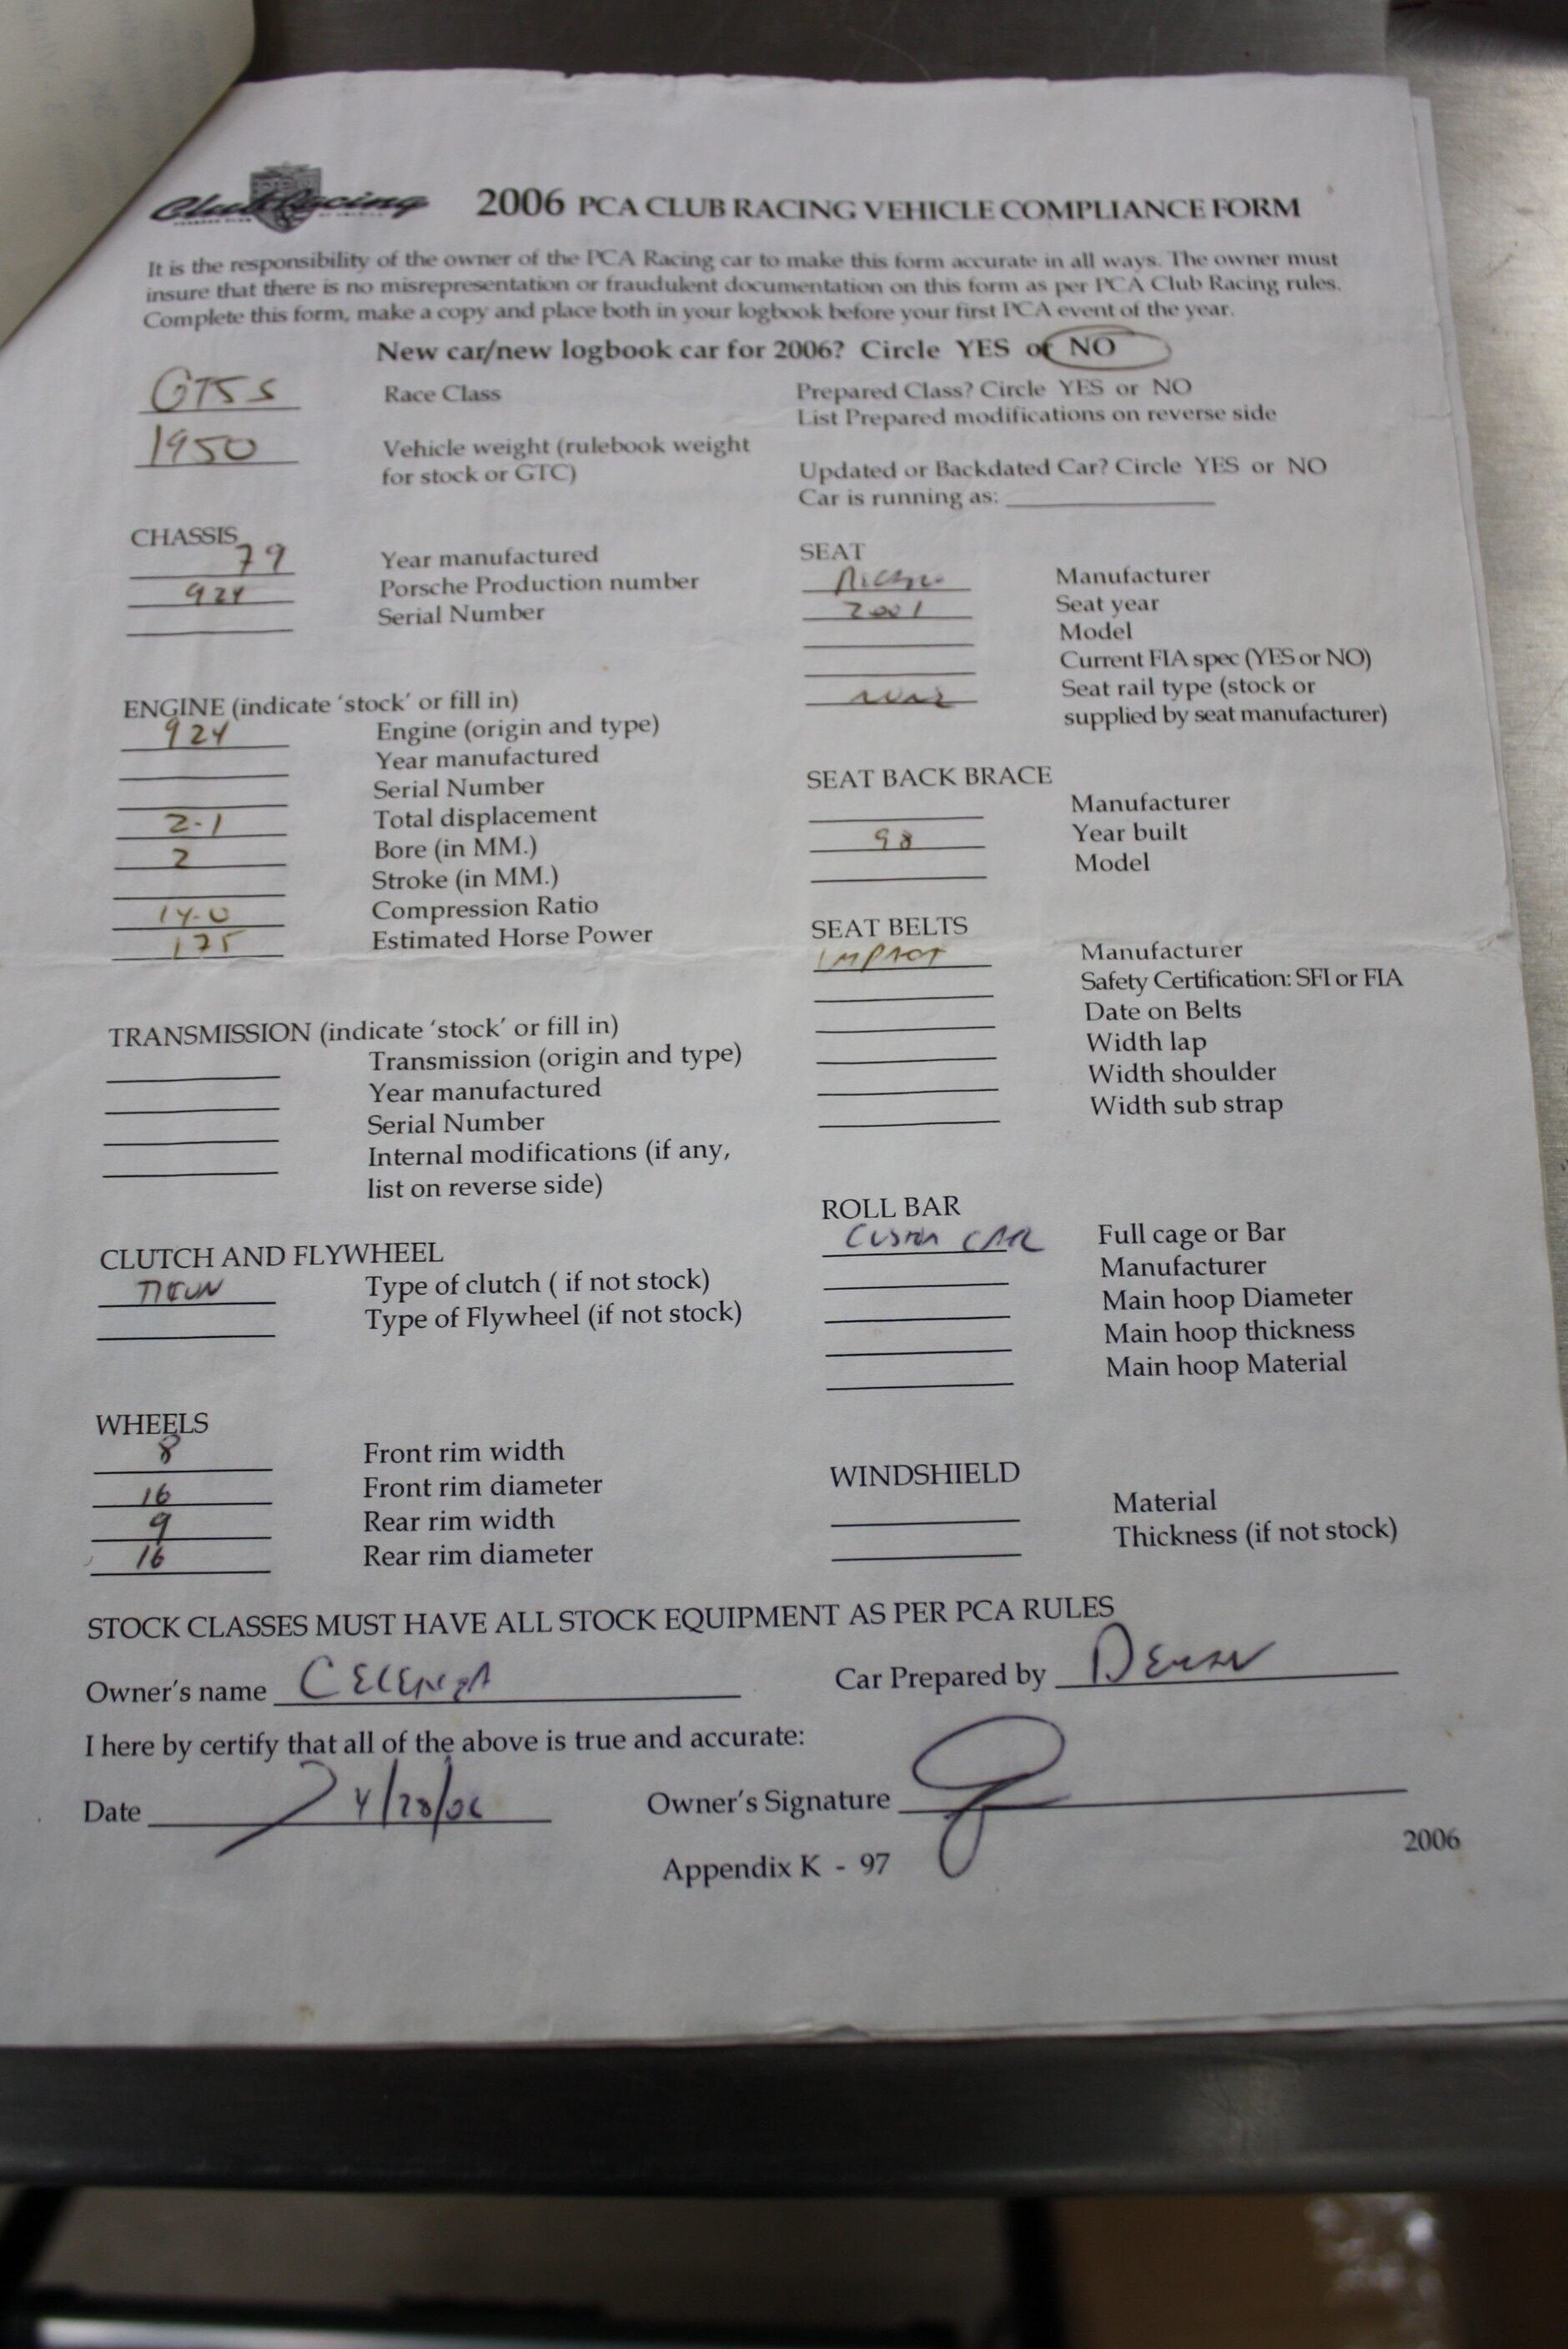 Club Racing
2006 PCA CLUB RACING VEHICLE COMPLIANCE FORM
It is the responsibility of the owner of the PCA Racing car to make this form accurate in all ways. The owner must
insure that there is no misrepresentation or fraudulent documentation on this form as per PCA Club Racing rules.
Complete this form, make a copy and place both in your logbook before your first PCA event of the year.
New car/new logbook car for 2006? Circle YES or NO
GT5S Race Class
1950 Vehicle weight (rulebook weight
for stock or GTC)
Prepared Class? Circle YES or NO
List Prepared modifications on reverse side
Updated or Backdated Car? Circle YES or NO
Car is running as:
CHASSIS
79 Year manufactured
924 Porsche Production number
Serial Number
ENGINE (indicate 'stock' or fill in)
924 Engine (origin and type)
Year manufactured
Serial Number
2.1 Total displacement
2 Bore (in MM.)
Stroke (in MM.)
14.0 Compression Ratio
175 Estimated Horse Power
TRANSMISSION (indicate 'stock' or fill in)
Transmission (origin and type)
Year manufactured
Serial Number
Internal modifications (if any,
list on reverse side)
CLUTCH AND FLYWHEEL
Type of clutch ( if not stock)
Type of Flywheel (if not stock)
WHEELS
8 Front rim width
16 Front rim diameter
9 Rear rim width
16 Rear rim diameter
SEAT
Manufacturer
2001 Seat year
Model
Current FIA spec (YES or NO)
Seat rail type (stock or
supplied by seat manufacturer)
SEAT BACK BRACE
Manufacturer
98 Year built
Model
SEAT BELTS
IMPACT Manufacturer
Safety Certification: SFI or FIA
Date on Belts
Width lap
Width shoulder
Width sub strap
ROLL BAR
Custom Full cage or Bar
Manufacturer
Main hoop Diameter
Main hoop thickness
Main hoop Material
WINDSHIELD
Material
Thickness (if not stock)
STOCK CLASSES MUST HAVE ALL STOCK EQUIPMENT AS PER PCA RULES
Owner's name Car Prepared by
I here by certify that all of the above is true and accurate:
Date 4/28/06 Owner's Signature
Appendix K - 97
2006